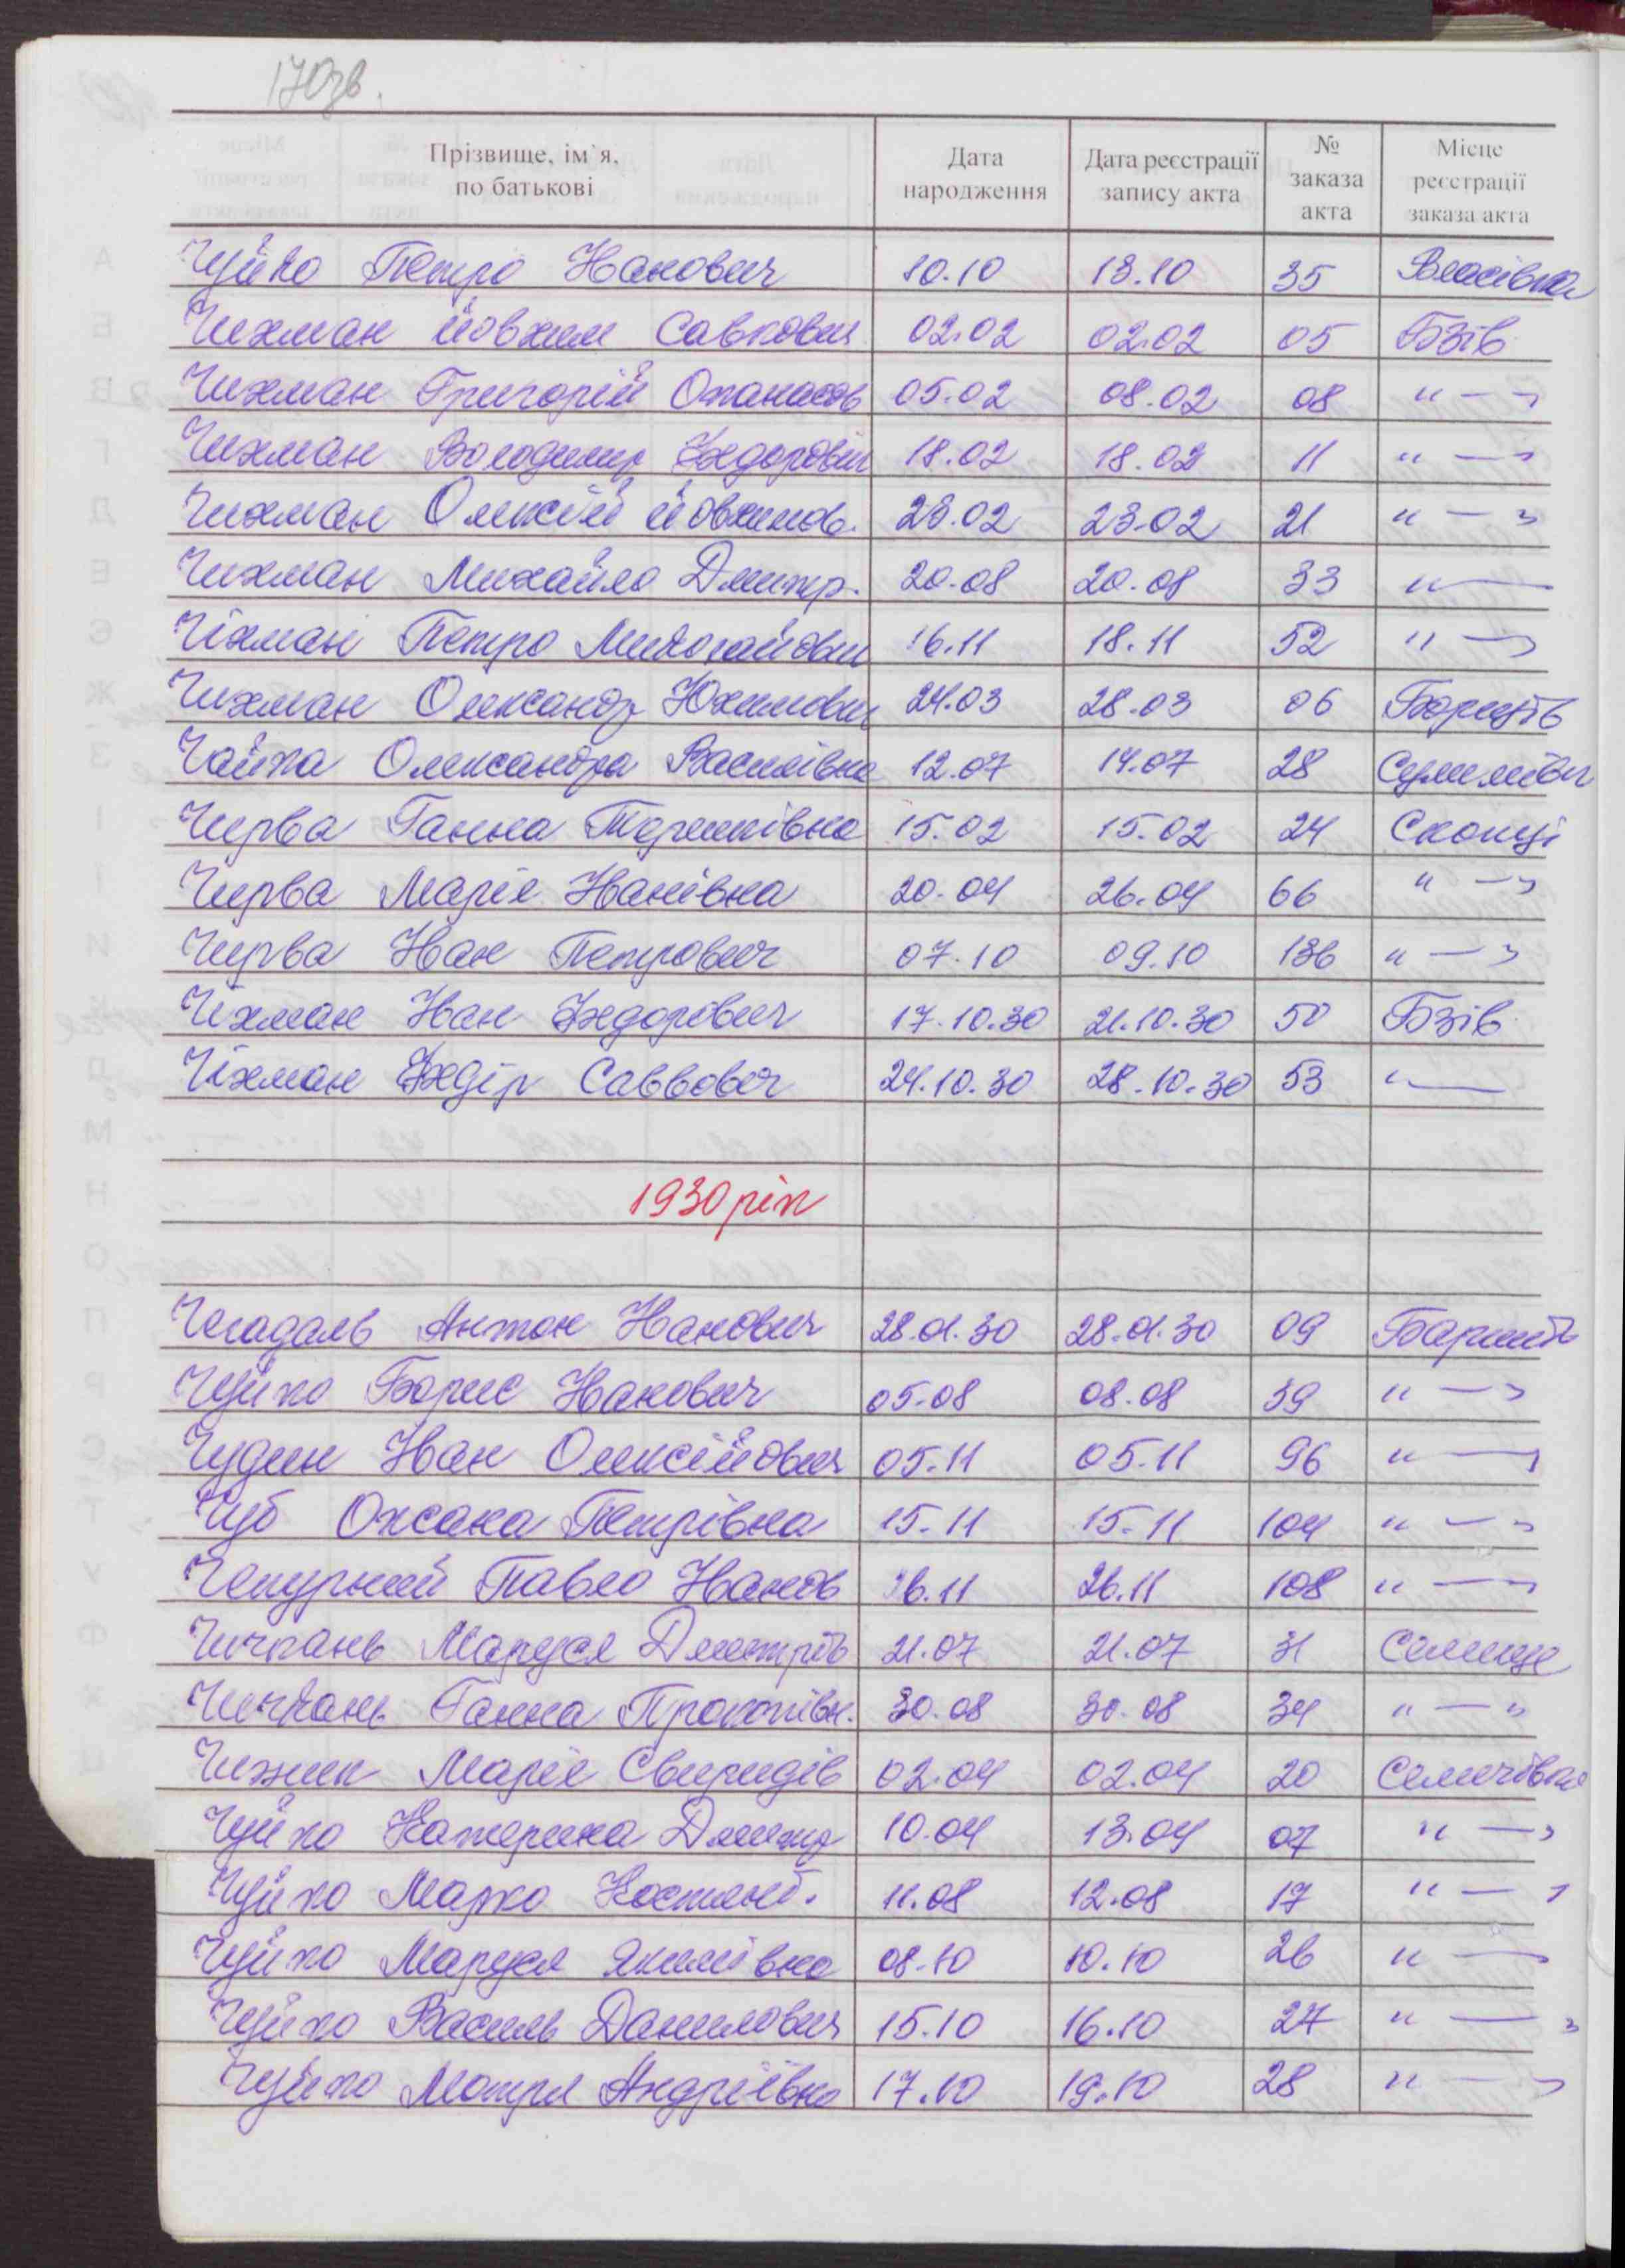 170зв.
Прізвище, ім`я, по батькові Дата народження Дата реєстрації запису акта № заказа акта Місце реєстрації заказа акта
Чуйко Петро Іванович 10.10 13.10 35 Власівка
Чихман Йовхим Савкович 02.02 02.02 05 Бзів
Чихман Григорій Опанасов 05.02 08.02 08 " — "
Чихман Володимир Федорович 18.02 18.02 11 " — "
Чихман Олексій Йовхимов. 23.02 23.02 21 " — "
Чихман Михайло Дмитр. 20.08 20.08 33 " —
Чіхман Петро Миколайович 16.11 18.11 52 " — "
Чихман Олександр Юхимович 24.03 28.03 06 Борщів
Чайка Олександра Василівна 12.07 14.07 28
Чирва Ганна Терешківна 15.02 15.02 24 Скопці
Чирва Марія Іванівна 20.04 26.04 66 " — "
Чирва Іван Петрович 07.10 09.10 136 " — "
Чіхман Іван Федорович 17.10.30 21.10.30 50 Бзів
Чіхман Федір Саввович 24.10.30 28.10.30 53 " —
1930 рік
Антон Іванович 28.01.30 28.01.30 09
Чуйко Борис Іванович 05.08 08.08 39 " — "
Чудин Іван Олексійович 05.11 05.11 96 " — "
Чуб Оксана Петрівна 15.11 15.11 104 " — "
Чепурний Павло Іванов 26.11 26.11 108 " — "
Чичкань Маруся Дмитрів 21.07 21.07 31 Селище
Чичкань Ганна Прокопівн. 30.08 30.08 34 " — "
Чижик Марія Свиридів 02.04 02.04 20 Селичівка
Чуйко Катерина Дмитр 10.04 13.04 07 " — "
Чуйко Марко Костянт. 11.08 12.08 17 " — "
Чуйко Маруся Якимівна 08.10 10.10 26 " —
Чуйко Василь Данилович 15.10 16.10 27 " — "
Чуйко Мотря Андріївна 17.10 19.10 28 " — "